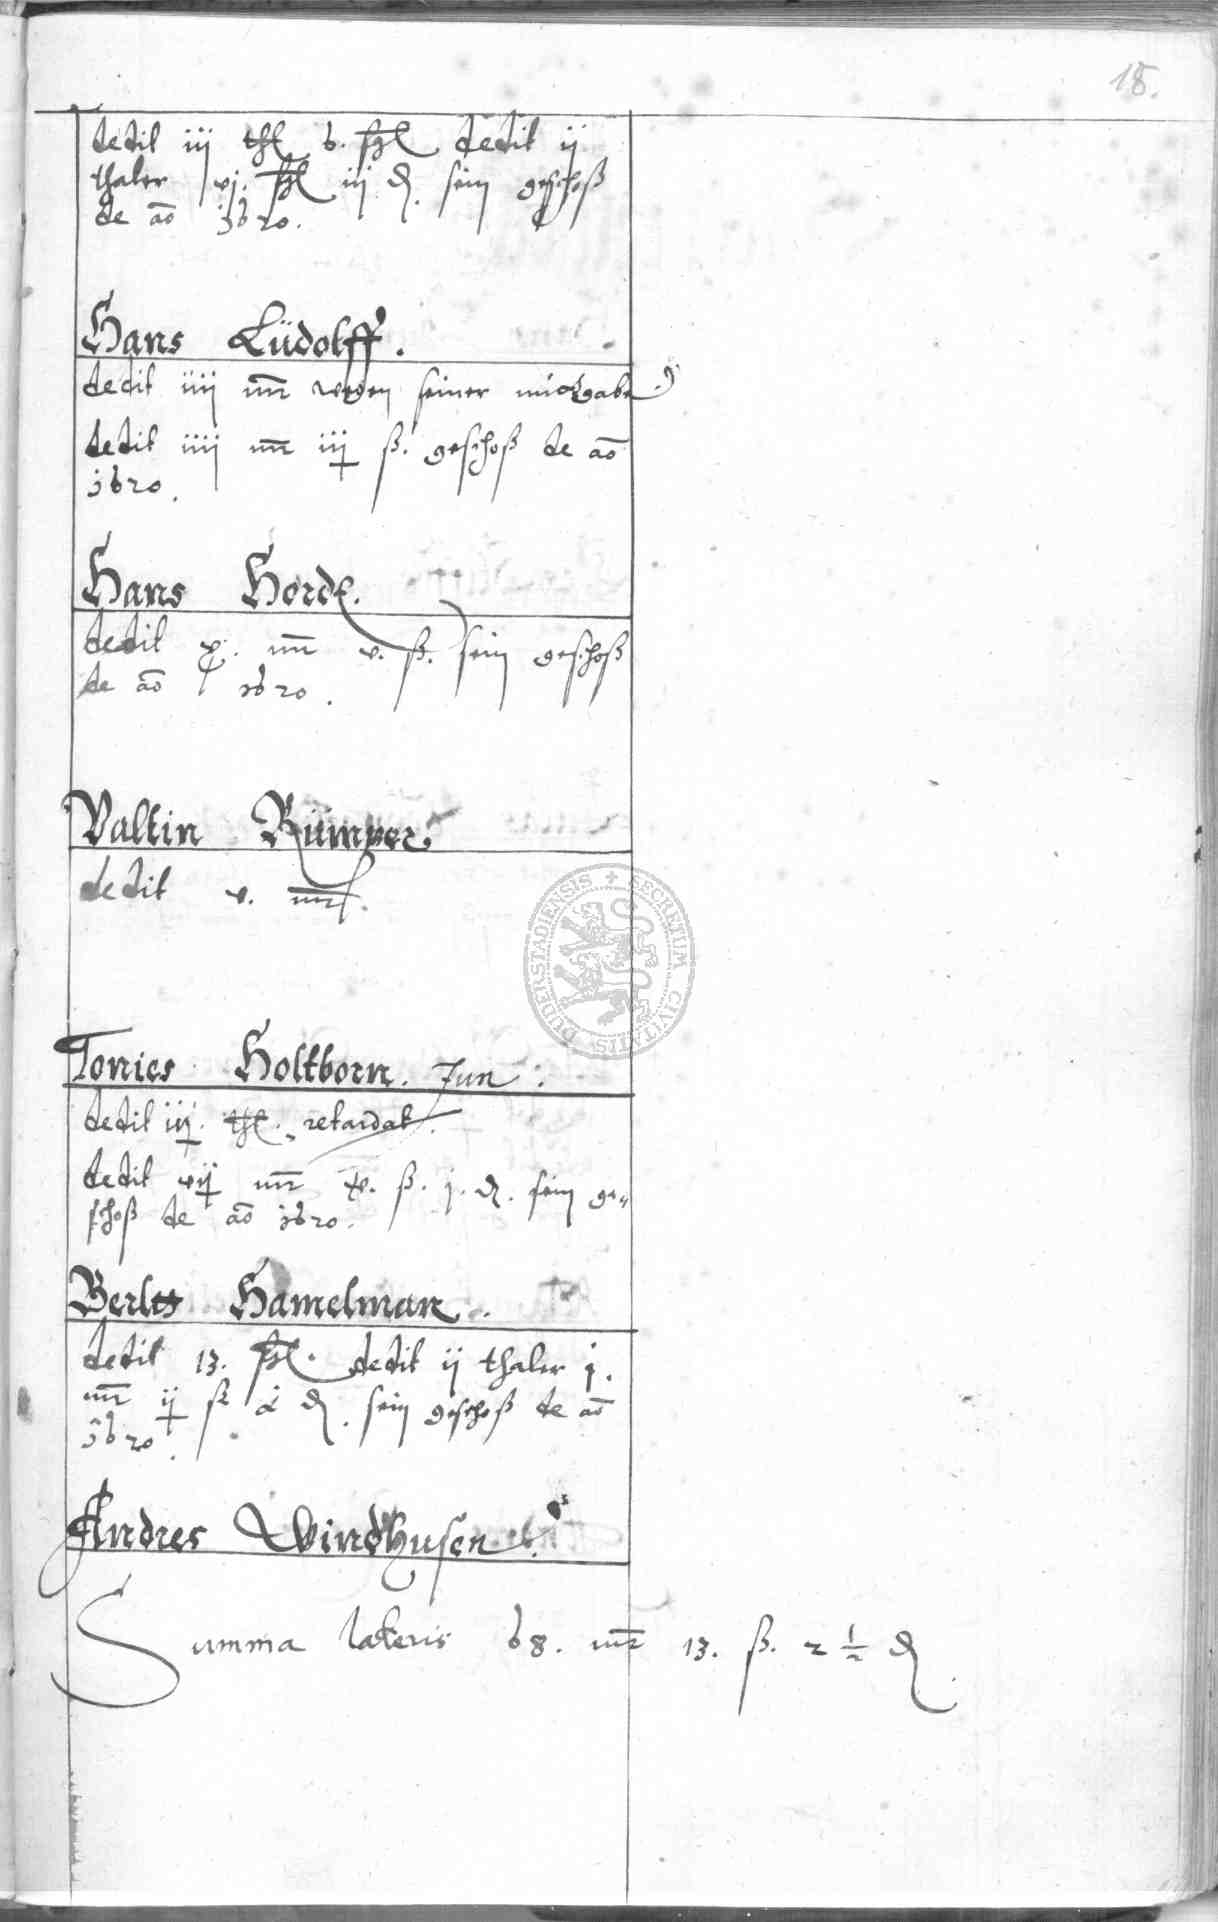 18.
dedit iij thl 6. ßl dedit ij
thaler vj. ßl iij ₰. sein geschoß
de ao 1620.
Hans Lüdolff.
dedit iiij mr wegen seiner
dedit iiij mr iij ß. geschoß de ao
1620.
Hans Hord.
dedit x. mr v. ß. sein geschoß
de ao 1620.
Valtin Rümper.
dedit v. mr.
Tonies Holtborn. Jun.
dedit iij. thl. retardat.
dedit vij mr v. ß. j. ₰. sein ge„
schoß de ao 1620.
Hamelman.
dedit 13. ßl. dedit ij thaler j.
mr ij ß ₰. sein geschoß de ao
1620.
Andres Windhusen.
Summa lateris 68. mr 13. ß. 2 1/2 ₰
SECRETUM CIVITATIS DUDERSTADIENSIS